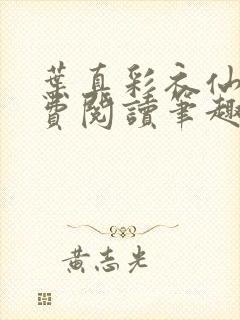 葉真彩衣仙
費閱讀筆趣
黃志光